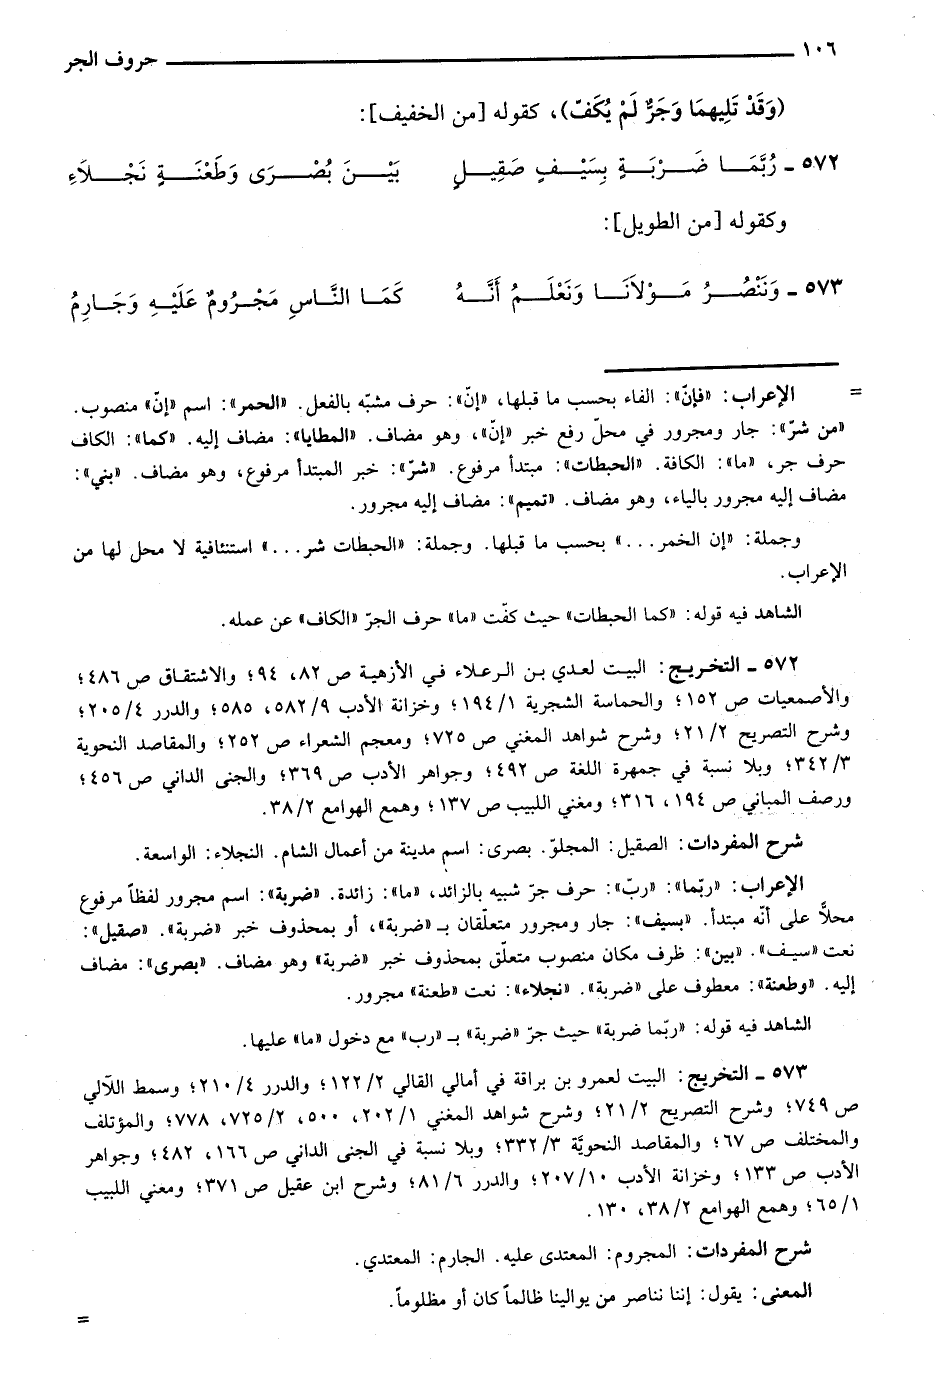 ١٠٦ حروف الجر
(وَقَدْ تَلِيهِمَا وَجَرٌّ لَمْ يُكَفّ)، كقوله [من الخفيف]:
٥٧٢ ـ رُبَّمَـا ضَـرْبَـةٍ بِسَيْـفٍ صَقِيـلٍ بَيْـنَ بُصْـرَى وَطَعْنَـةٍ نَجْـلَاءِ
وكقوله [من الطويل]:
٥٧٣ ـ وَنَنْصُـرُ مَـوْلَانَـا وَنَعْلَـمُ أَنَّـهُ كَمَـا النَّـاسِ مَجْـرُومٌ عَلَيْـهِ وَجَـارِمُ
= الإعراب: «فإنّ»: الفاء بحسب ما قبلها، «إنّ»: حرف مشبّه بالفعل. «الحمر»: اسم «إنّ» منصوب.
«من شرّ»: جار ومجرور في محلّ رفع خبر «إنّ»، وهو مضاف. «المطايا»: مضاف إليه. «كما»: الكاف
حرف جر، «ما»: الكافة. «الحبطات»: مبتدأ مرفوع. «شرّ»: خبر المبتدأ مرفوع، وهو مضاف. «بني»:
مضاف إليه مجرور بالياء، وهو مضاف. «تميم»: مضاف إليه مجرور.
وجملة: «إن الخمر...» بحسب ما قبلها. وجملة: «الحبطات شر...» استئنافية لا محل لها من
الإعراب.
الشاهد فيه قوله: «كما الحبطات» حيث كفّت «ما» حرف الجرّ «الكاف» عن عمله.
٥٧٢ ـ التخريج: البيت لعدي بن الرعلاء في الأزهية ص ٨٢، ٩٤؛ والاشتقاق ص ٤٨٦؛
والأصمعيات ص ١٥٢؛ والحماسة الشجرية ١/١٩٤؛ وخزانة الأدب ٩/٥٨٢، ٥٨٥؛ والدرر ٤/٢٠٥؛
وشرح التصريح ٢/٢١؛ وشرح شواهد المغني ص ٧٢٥؛ ومعجم الشعراء ص ٢٥٢؛ والمقاصد النحوية
٣/٣٤٢؛ وبلا نسبة في جمهرة اللغة ص ٤٩٢؛ وجواهر الأدب ص ٣٦٩؛ والجنى الداني ص ٤٥٦؛
ورصف المباني ص ١٩٤، ٣١٦؛ ومغني اللبيب ص ١٣٧؛ وهمع الهوامع ٢/٣٨.
شرح المفردات: الصقيل: المجلوّ. بصرى: اسم مدينة من أعمال الشام. النجلاء: الواسعة.
الإعراب: «ربّما»: «ربّ»: حرف جرّ شبيه بالزائد، «ما»: زائدة. «ضربة»: اسم مجرور لفظاً مرفوع
محلاًّ على أنّه مبتدأ. «بسيف»: جار ومجرور متعلّقان بـ «ضربة»، أو بمحذوف خبر «ضربة». «صقيل»:
نعت «سيف». «بين»: ظرف مكان منصوب متعلّق بمحذوف خبر «ضربة» وهو مضاف. «بصرى»: مضاف
إليه. «وطعنة»: معطوف على «ضربة». «نجلاء»: نعت «طعنة» مجرور.
الشاهد فيه قوله: «ربّما ضربة» حيث جرّ «ضربة» بـ «رب» مع دخول «ما» عليها.
٥٧٣ ـ التخريج: البيت لعمرو بن براقة في أمالي القالي ٢/١٢٢؛ والدرر ٤/٢١٠؛ وسمط اللآلي
ص ٧٤٩؛ وشرح التصريح ٢/٢١؛ وشرح شواهد المغني ١/٢٠٢، ٥٠٠، ٢/٧٢٥، ٧٧٨؛ والمؤتلف
والمختلف ص ٦٧؛ والمقاصد النحويَّة ٣/٣٣٢؛ وبلا نسبة في الجنى الداني ص ١٦٦، ٤٨٢؛ وجواهر
الأدب ص ١٣٣؛ وخزانة الأدب ١٠/٢٠٧؛ والدرر ٦/٨١؛ وشرح ابن عقيل ص ٣٧١؛ ومعني اللبيب
١/٦٥؛ وهمع الهوامع ٢/٣٨، ١٣٠.
شرح المفردات: المجروم: المعتدى عليه. الجارم: المعتدي.
المعنى: يقول: إننا نناصر من يوالينا ظالماً كان أو مظلوماً.
=